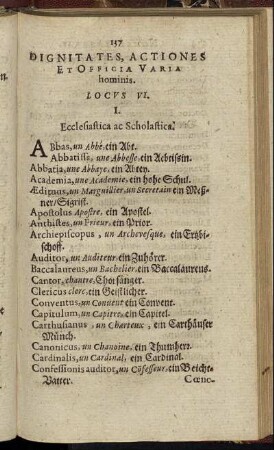 137
DIGNITATES, ACTIONES
ET OFFICIA VARIA
hominis.
LOCVS VI.
I.
Ecclesiastica ac Scholastica.
ABbas, un Abbé. ein Abt.
Abbatissa, une Abbesse. ein Aebtissin.
Abbatia, une Abbaye. ein Abtey.
Academia, une Academie. ein hohe Schul.
Ædituus, un Marguillier, un Secretain ein Meß-
ner/Sigrist.
Apostolus Apostre. ein Apostel.
Antistes, un Prieur. ein Prior.
Archiepiscopus, un Archevesque, ein Ertzbi-
schoff.
Auditor, un Auditeur. ein Zuhörer.
Baccalaureus, un Bachelier. ein Baccalaureus.
Cantor, chantre. Chorsänger.
Clericus clerc. ein Geistlicher.
Conventus, un Convent ein Convent.
Capitulum, un Capitre. ein Capitel.
Carthusianus, un Charteux, ein Carthäuser
Münch.
Canonicus, un Chanoine. ein Thumherr.
Cardinalis, un Cardinal, ein Cardinal.
Confessionis auditor, un Cõfesseur. ein Beicht-
Vatter.
Cœnc-